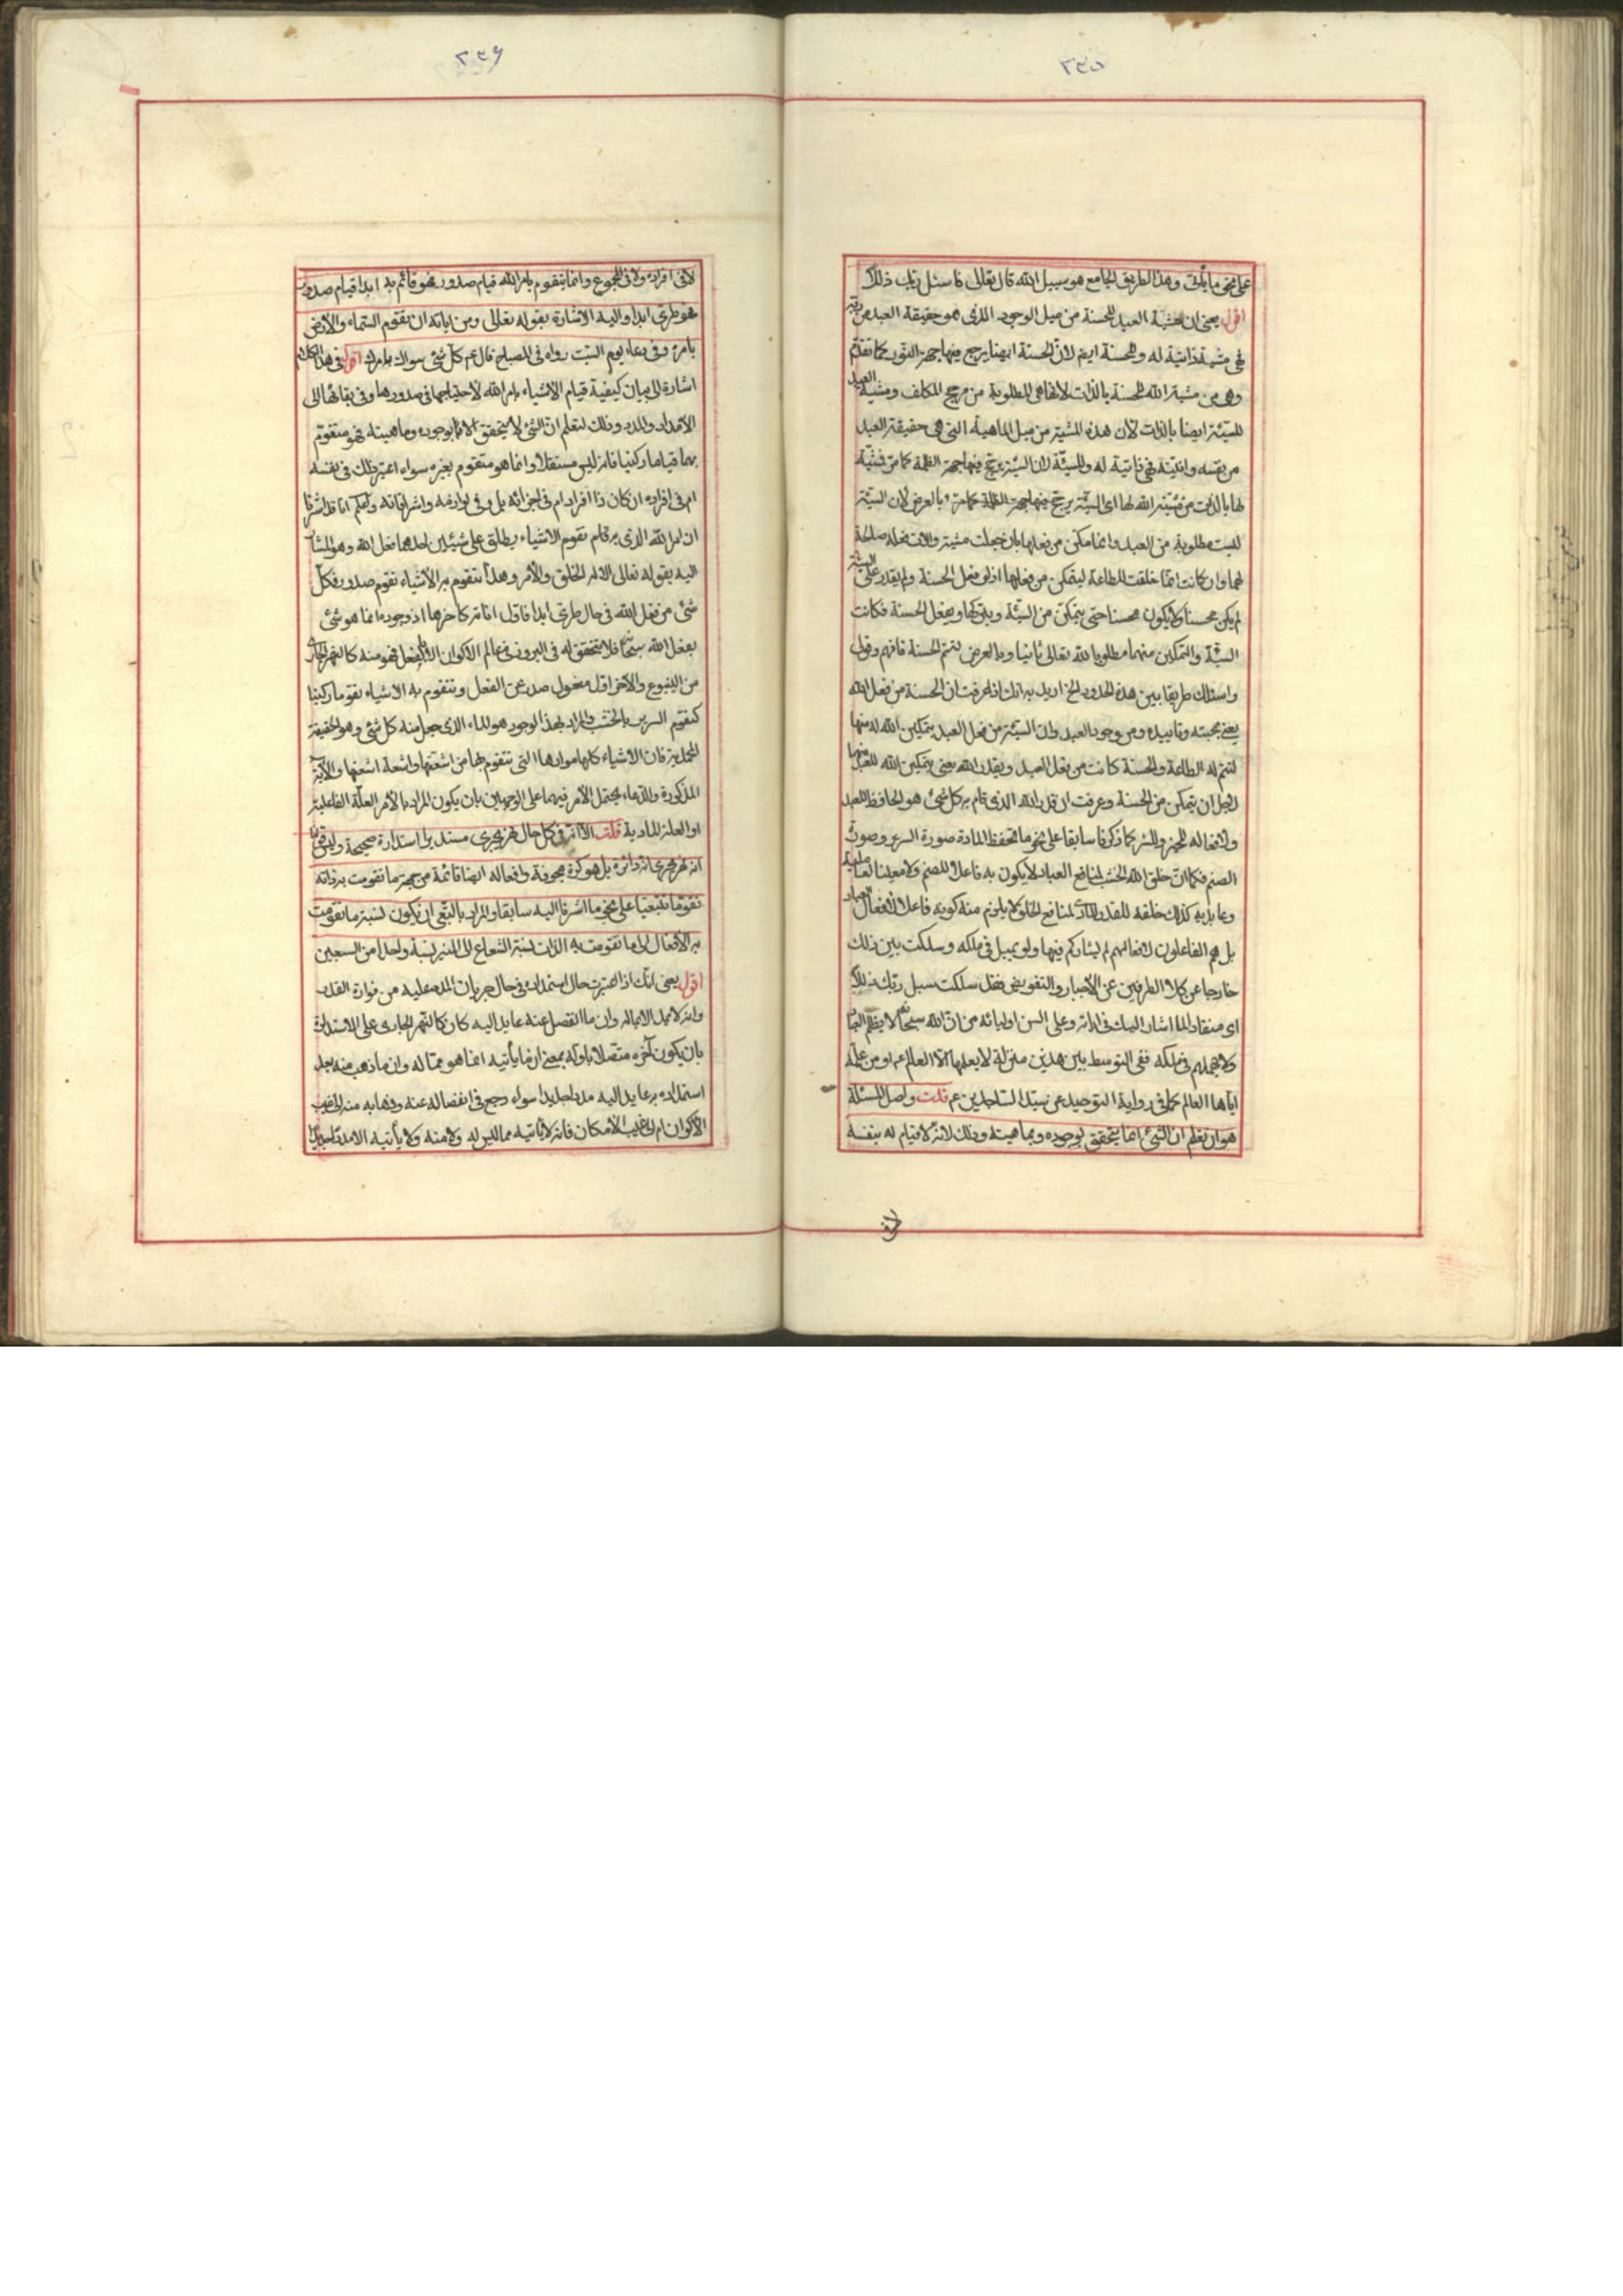 ٢٣٥
على نحو ما يأتى وهذا الطريق الجامع هو سبيل الله قال تعالى فاسئل ربك ذلك
اقول يعنى ان مشية العبد للحسنة من ميل الوجود الذى هو حقيقة العبد من ربه
فهى مشية ذاتية له وللحسنة ايضا لان الحسنة ايضا يرجح فيها جهة النور كما تقدم
وهى من مشية الله للحسنة بالذات لانها هى المطلوبة من مرجح المكلف ومشية العبد
للسيئة ايضا بالذات لان هذه المشية من ميل الماهية التى هى حقيقة العبد
من نفسه وانيته فهى ذاتية له وللسيئة لان السيئة يرجح فيها جهة الظلمة كما مر فمشية
لها بالذات من مشية الله لها اى السيئة يرجح فيها جهة الظلمة كما مر وبالعرض لان السيئة
ليست مطلوبة من العبد وانما مكن من فعلها بان جعلت مشية والات فعله صالحة
لهما وان كانت انما خلقت للطاعة ليتمكن من فعلها اذ لو فعل الحسنة ولم يقدر على السيئة
لم يكن محسنا ولا يكون محسنا حتى يتمكن من السيئة ويتركها ويفعل الحسنة فكانت
السيئة والتمكين منها مطلوبا لله تعالى ثانيا وبالعرض لتتم الحسنة فافهم وقولى
واسئلك طريقا بين هذه الحدود الخ اريد به انك اذا عرفت ان الحسنة من فعل الله
يعنى بمحبته وتأييده ومن وجود العبد وان السيئة من فعل العبد بتمكين الله له منها
لتتم له الطاعة والحسنة كانت من فعل العبد وبقدر الله يعنى بتمكين الله للعبد منها
لاجل ان يتمكن من الحسنة وعرفت ان قدر الله الذى قام به كل شئ هو الحافظ للعبد
ولافعاله للخير والشر كما ذكرنا سابقا على نحو ما تحفظ المادة صورة السرير وصورة
الصنم فكما ان خلق الله الخشب لمنافع العباد لا يكون به فاعلا للصنم ولا معينا لعامليه
وعابديه كذلك خلقه للقدر والمادة لمنافع الخلق لا يلزم منه كونه فاعلا لافعال العباد
بل هم الفاعلون لافعالهم لم يشاركهم فيها ولم يهمل فى ملكه وسلكت بين ذلك
خارجا عن كلا الطرفين عن الاجبار والتفويض فقد سلكت سبل ربك ذللا
اى منقادا لما اشار اليك فى اياته وعلى السن اوليائه من ان الله سبحانه لا يظلم العباد
ولا يهملهم فى ملكه ففى التوسط بين هذين منزلة لا يعلمها الا العالم ع او من علمه
اياها العالم كما فى رواية التوحيد عن سيد الساجدين ع قلت واصل المسئلة
هو ان تعلم ان الشئ انما يتحقق بوجوده وبماهيته وذلك لانه لا قيام له بنفسه
لا فى
٢٣٦
لا فى افراده ولا فى المجموع وانما يتقوم بامر الله قيام صدور فهو قائم به ابدا قيام صدور
فهو طرى ابدا واليه الاشارة بقوله تعالى ومن اياته ان تقوم السماء والارض
بامره وفى دعاء يوم السبت رواه فى المصباح قال ع كل شئ سواك بامرك اقول فى هذا الكلام
اشارة الى بيان كيفية قيام الاشياء بامر الله لاحتياجها فى صدورها وفى بقائها الى
الامداد والمدد وذلك لتعلم ان الشئ لا يتحقق الا بوجوده وماهيته فهو متقوم
بهما قياما ركنيا فانه ليس مستقلا وانما هو متقوم بغيره سواء اعتبر ذلك فى نفسه
ام فى افراده ان كان ذا افراد ام فى اجزائه بل وفى لوازمه واشراقاته واعلم انا قد اشرنا
ان امر الله الذى به قام تقوم الاشياء يطلق على شيئين احدهما فعل الله وهو المشار
اليه بقوله تعالى الا له الخلق والامر وهذا تتقوم به الاشياء تقوم صدور فكل
شئ من فعل الله فى حال طرى ابدا فاول انائه كاخرها اذ وجوده انما هو شئ
بفعل الله سبحانه فلا تتحقق له فى البروز فى عالم الاكوان الا بالفعل فهو منه كالنهر الجارى
من الينبوع والاخر اول مفعول صدر عن الفعل وتتقوم به الاشياء تقوما ركنيا
كتقوم السرير بالخشب والمراد بهذا الوجود هو الماء الذى جعل منه كل شئ وهو الحقيقة
المحمدية فان الاشياء كلها موادها التى تتقوم بها من اشعتها واشعة اشعتها والاية
المذكورة والدعاء يحتمل الامر فيهما على الوجهين بان يكون المراد بالامر العلة الفاعلية
او العلة المادية قلت الا انه فى كل حال نهر يجرى مستديرا استدارة صحيحة وليس
انه نهر يجرى انه دائرة بل هو كرة مجوفة وافعاله ايضا قائمة من جهة ما تقومت به ذاته
تقوما تبعيا على نحو ما اشرنا اليه سابقا والمراد بالتبعى ان يكون نسبة ما تقومت
به الافعال الى ما تقومت به الذات نسبة الشعاع الى المنير نسبة واحد من السبعين
اقول يعنى انك اذا اعتبرت حال استمداده فى حال جريان المدد عليه من فوارة القدر
وانه لا يمد الا بماله وان ما انفصل عنه عايد اليه كان كالنهر الجارى على الاستدارة
بان يكون آخره متصلا باوله بمعنى ان ما يأتيه انما هو مما له وان ما ذهب منه بعد
استمداده به عايد اليه مددا جديدا سواء رجع فى انفصاله عنه وذهابه منه الى غيب
الاكوان ام الى غيب الامكان فانه لا يأتيه مما ليس له ولا منه ولا يأتيه الا مددا جديدا